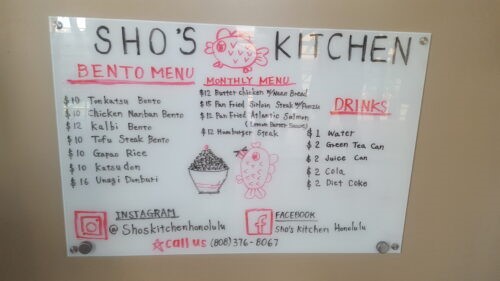 SHO'S KITCHEN
BENTO MENU
$10 Tonkatsu Bento
$10 Chicken Nanban Bento
$12 Kalbi Bento
$10 Tofu Steak Bento
$10 Gapao Rice
$10 Katsudon
$16 Unagi Donburi
MONTHLY MENU
$12 Butter chicken w/Naan Bread
$15 Pan Fried Sirloin Steak w/Ponzu
$12 Pan Fried Atlantic Salmon
(Lemon Butter Sauce)
$12 Hamburger Steak
DRINKS
$1 Water
$2 Green Tea Can
$2 Juice Can
$2 Cola
$2 Diet Coke
INSTAGRAM
@Shoskitchenhonolulu
FACEBOOK
Sho's Kitchen Honolulu
Call us (808)376-8067